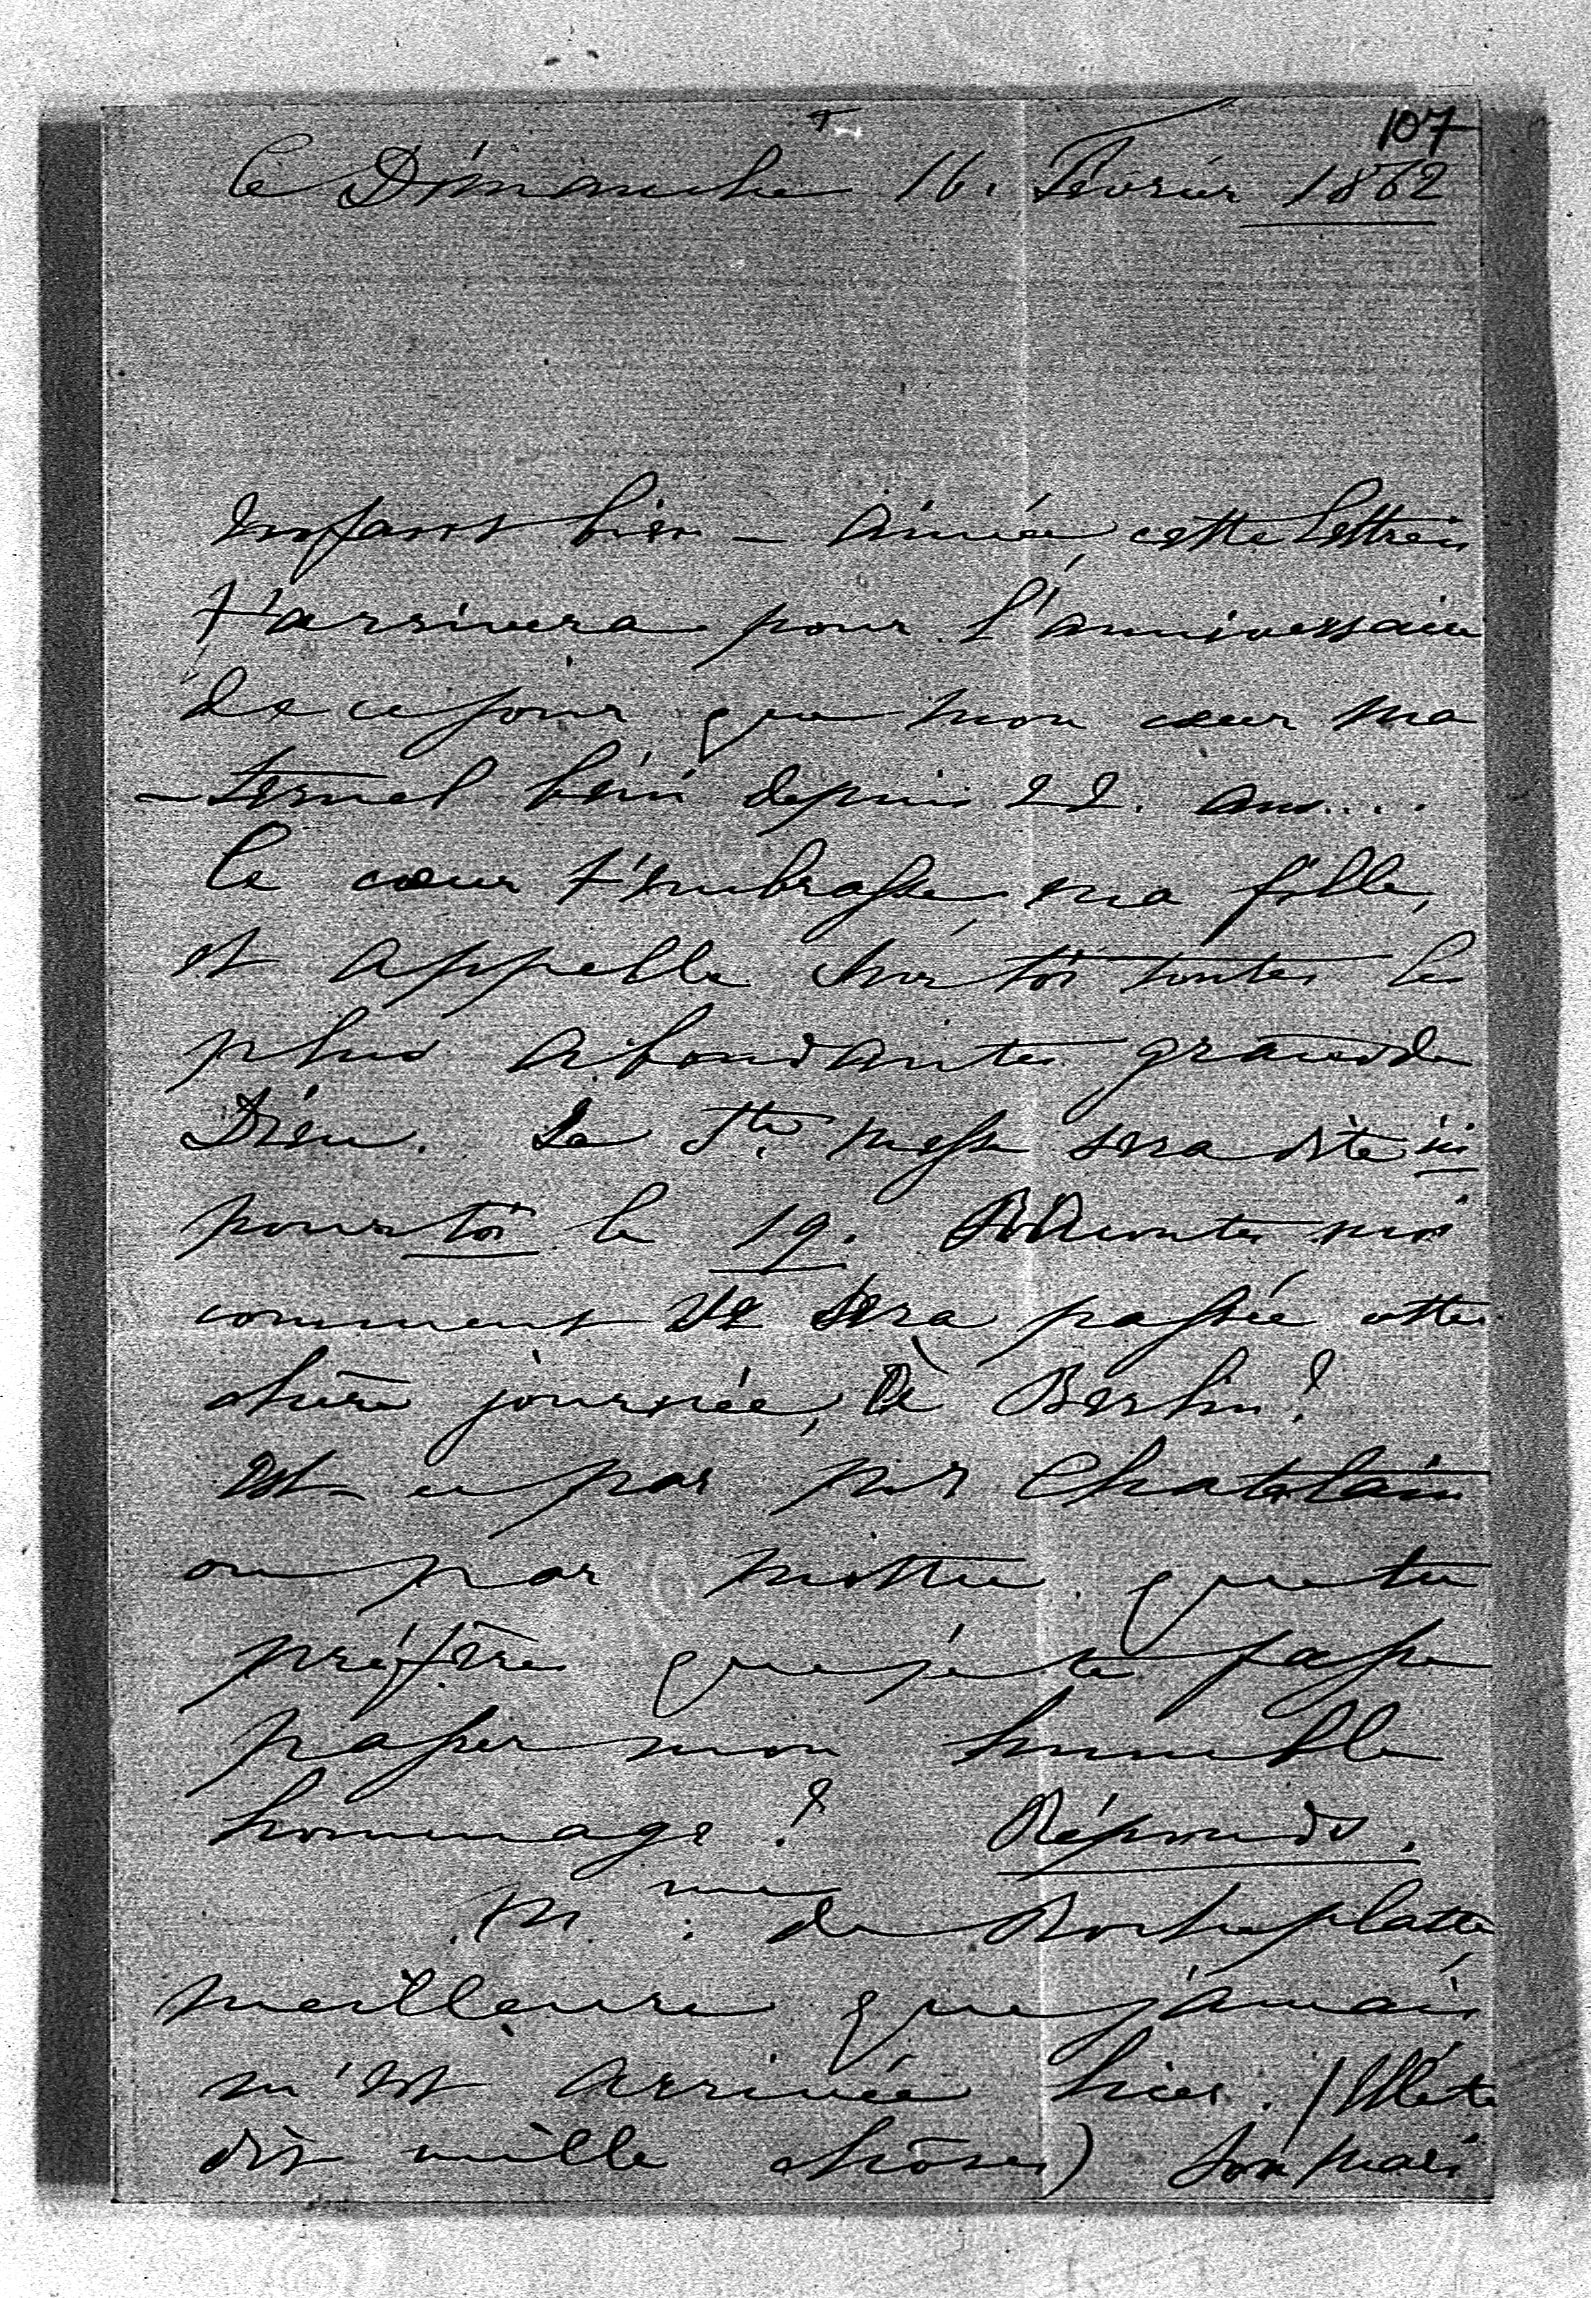 107
le Dimanche 16. Février 1862
Enfant bien-aimée, cette lettre
t'arrivera pour l'anniversaire
de ce jour que mon cœur ma
-ternel béni depuis 22. ans...
Ce cœur t'embrasse, ma fille,
et appelle sur toi toutes les
plus abondantes graces de
Dieu. La Ste messe sera dite ici
pour toi le 19. Racontes moi
comment se sera passée cette
chère journée, à Berlin?
Est-ce par Mr Chatelain
ou par que tu
préfères que je te fasse
passer mon humble
hommage? Réponds.
Mme de Rocheplatte
meilleure que jamais
m'est arrivée hier. (Elle te
dit mille chôses) Son mari